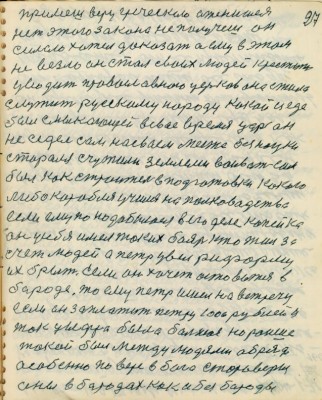 27
примеш веру греческаю а женишся
нет этого закона неполучиш он
сильно хотел доказат а ему в этом
не везло он стал своих людей крестит
уводит православною церков она стала
служит русскому народу какой
был смикающей всвае время цар он
не седел сам насваем месте без поуки
старался служит земле и воиват сам
был как строител в подготовки какого
либо корабля учился на полководства
если ему по надобился в его деле копейка
он у себя имел таких бояр кто жил за
счет людей а петр увел
их брит. если он хочет остовытся в
бароде, то ему петр шел на встречу
если он заплатит петру 1000 рублей и
ток у была балшое хорошие
такой был между людями обряд
особенно по вере в бога староверы
они в бародах как и без бароды